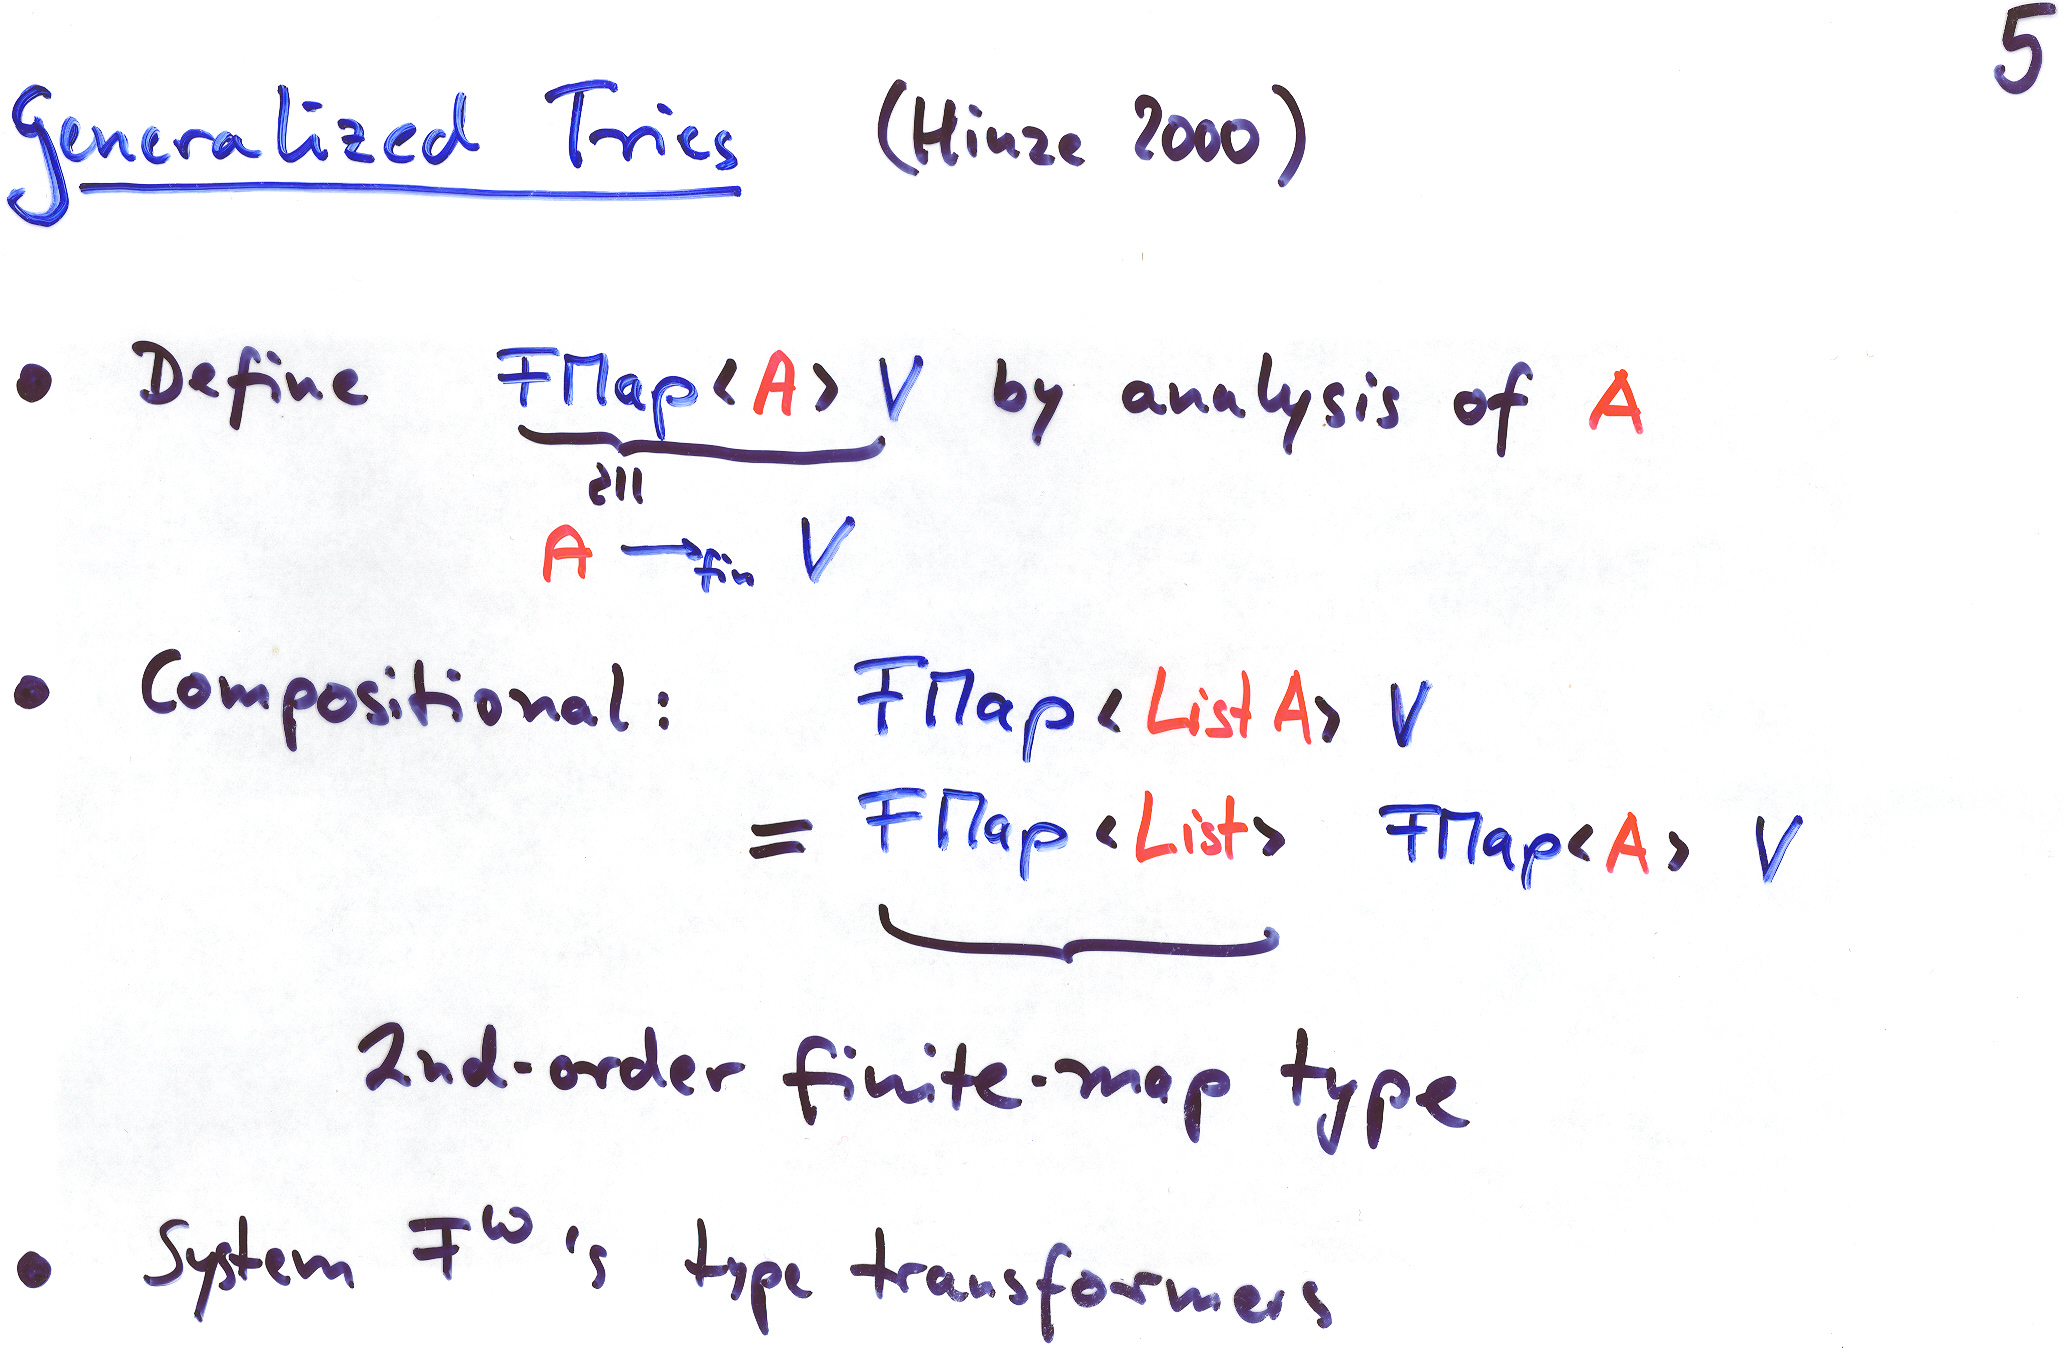 5
Generalized Tries (Hinze 2000)
• Define FMap<A> V by analysis of A
≅
A →fin V
• Compositional: FMap<List A> V
= FMap<List> FMap<A> V
2nd-order finite-map type
• System F^ω's type transformers